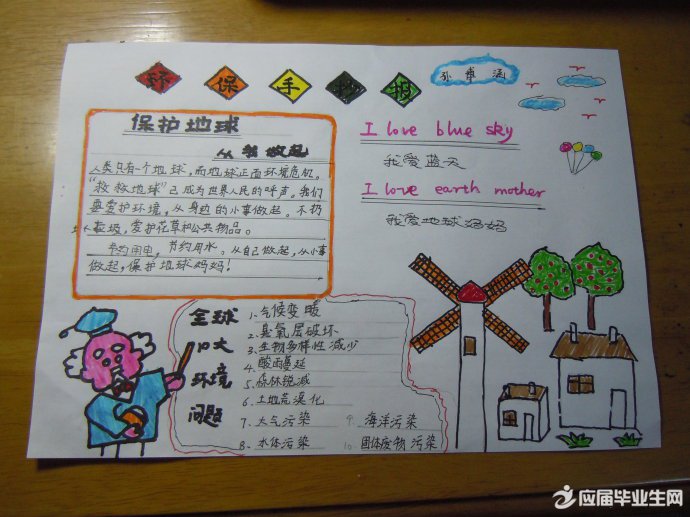 环保手抄报
孙 涵
保护地球
从我做起
人类只有一个地球,而地球正面环境危机。
"救救地球"已成为世界人民的呼声。我们
要爱护环境,从身边的小事做起。不扔
垃圾,爱护花草和公共物品。
节约用电,节约用水。从自己做起,从小事
做起,保护地球妈妈!
I love blue sky
我爱蓝天
I love earth mother
我爱地球妈妈
全球
十大
环境
问题
1.气候变暖
2.臭氧层破坏
3.生物多样性减少
4.酸雨蔓延
5.森林锐减
6.土地荒漠化
7.大气污染
8.水体污染
9.海洋污染
10.固体废物污染
应届毕业生网